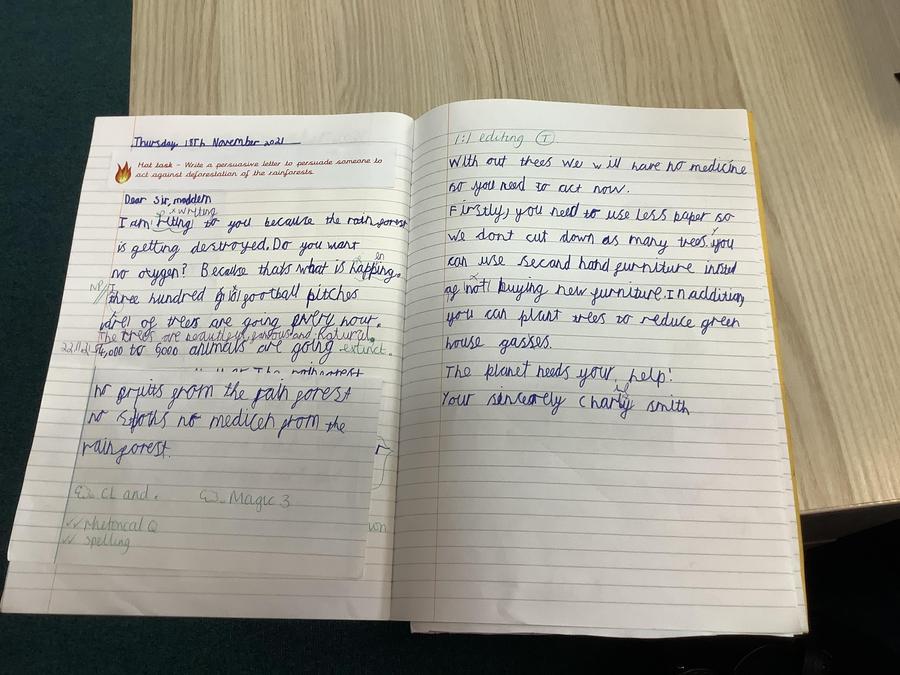 Thursday 18th November 2021
Hot task - Write a persuasive letter to persuade someone to
act against deforestation of the rainforests.
Dear Sir, maddem
writing
I am riting to you because the rain forest
is getting destroyed. Do you want
no oxygen? Because thats what is happing.
NP// three hundred football pitches
of trees are going every hour.
The trees are beautiful, and natural.
22.11.21 to 5000 animals are going extinct.
no fruits from the rain forest
no no medicen from the
rainforest.
CL and. Magic 3
✓✓ rhetorical Q
✓✓ spelling
1:1 editing T
With out trees we will have no medicine
so you need to act now.
Firstly, you need to use less paper so
we dont cut down as many trees. you
can use second hand furniture insted
of not buying new furniture. In addition,
you can plant trees to reduce green
house gasses.
The planet needs your help!
Your sincerely smith